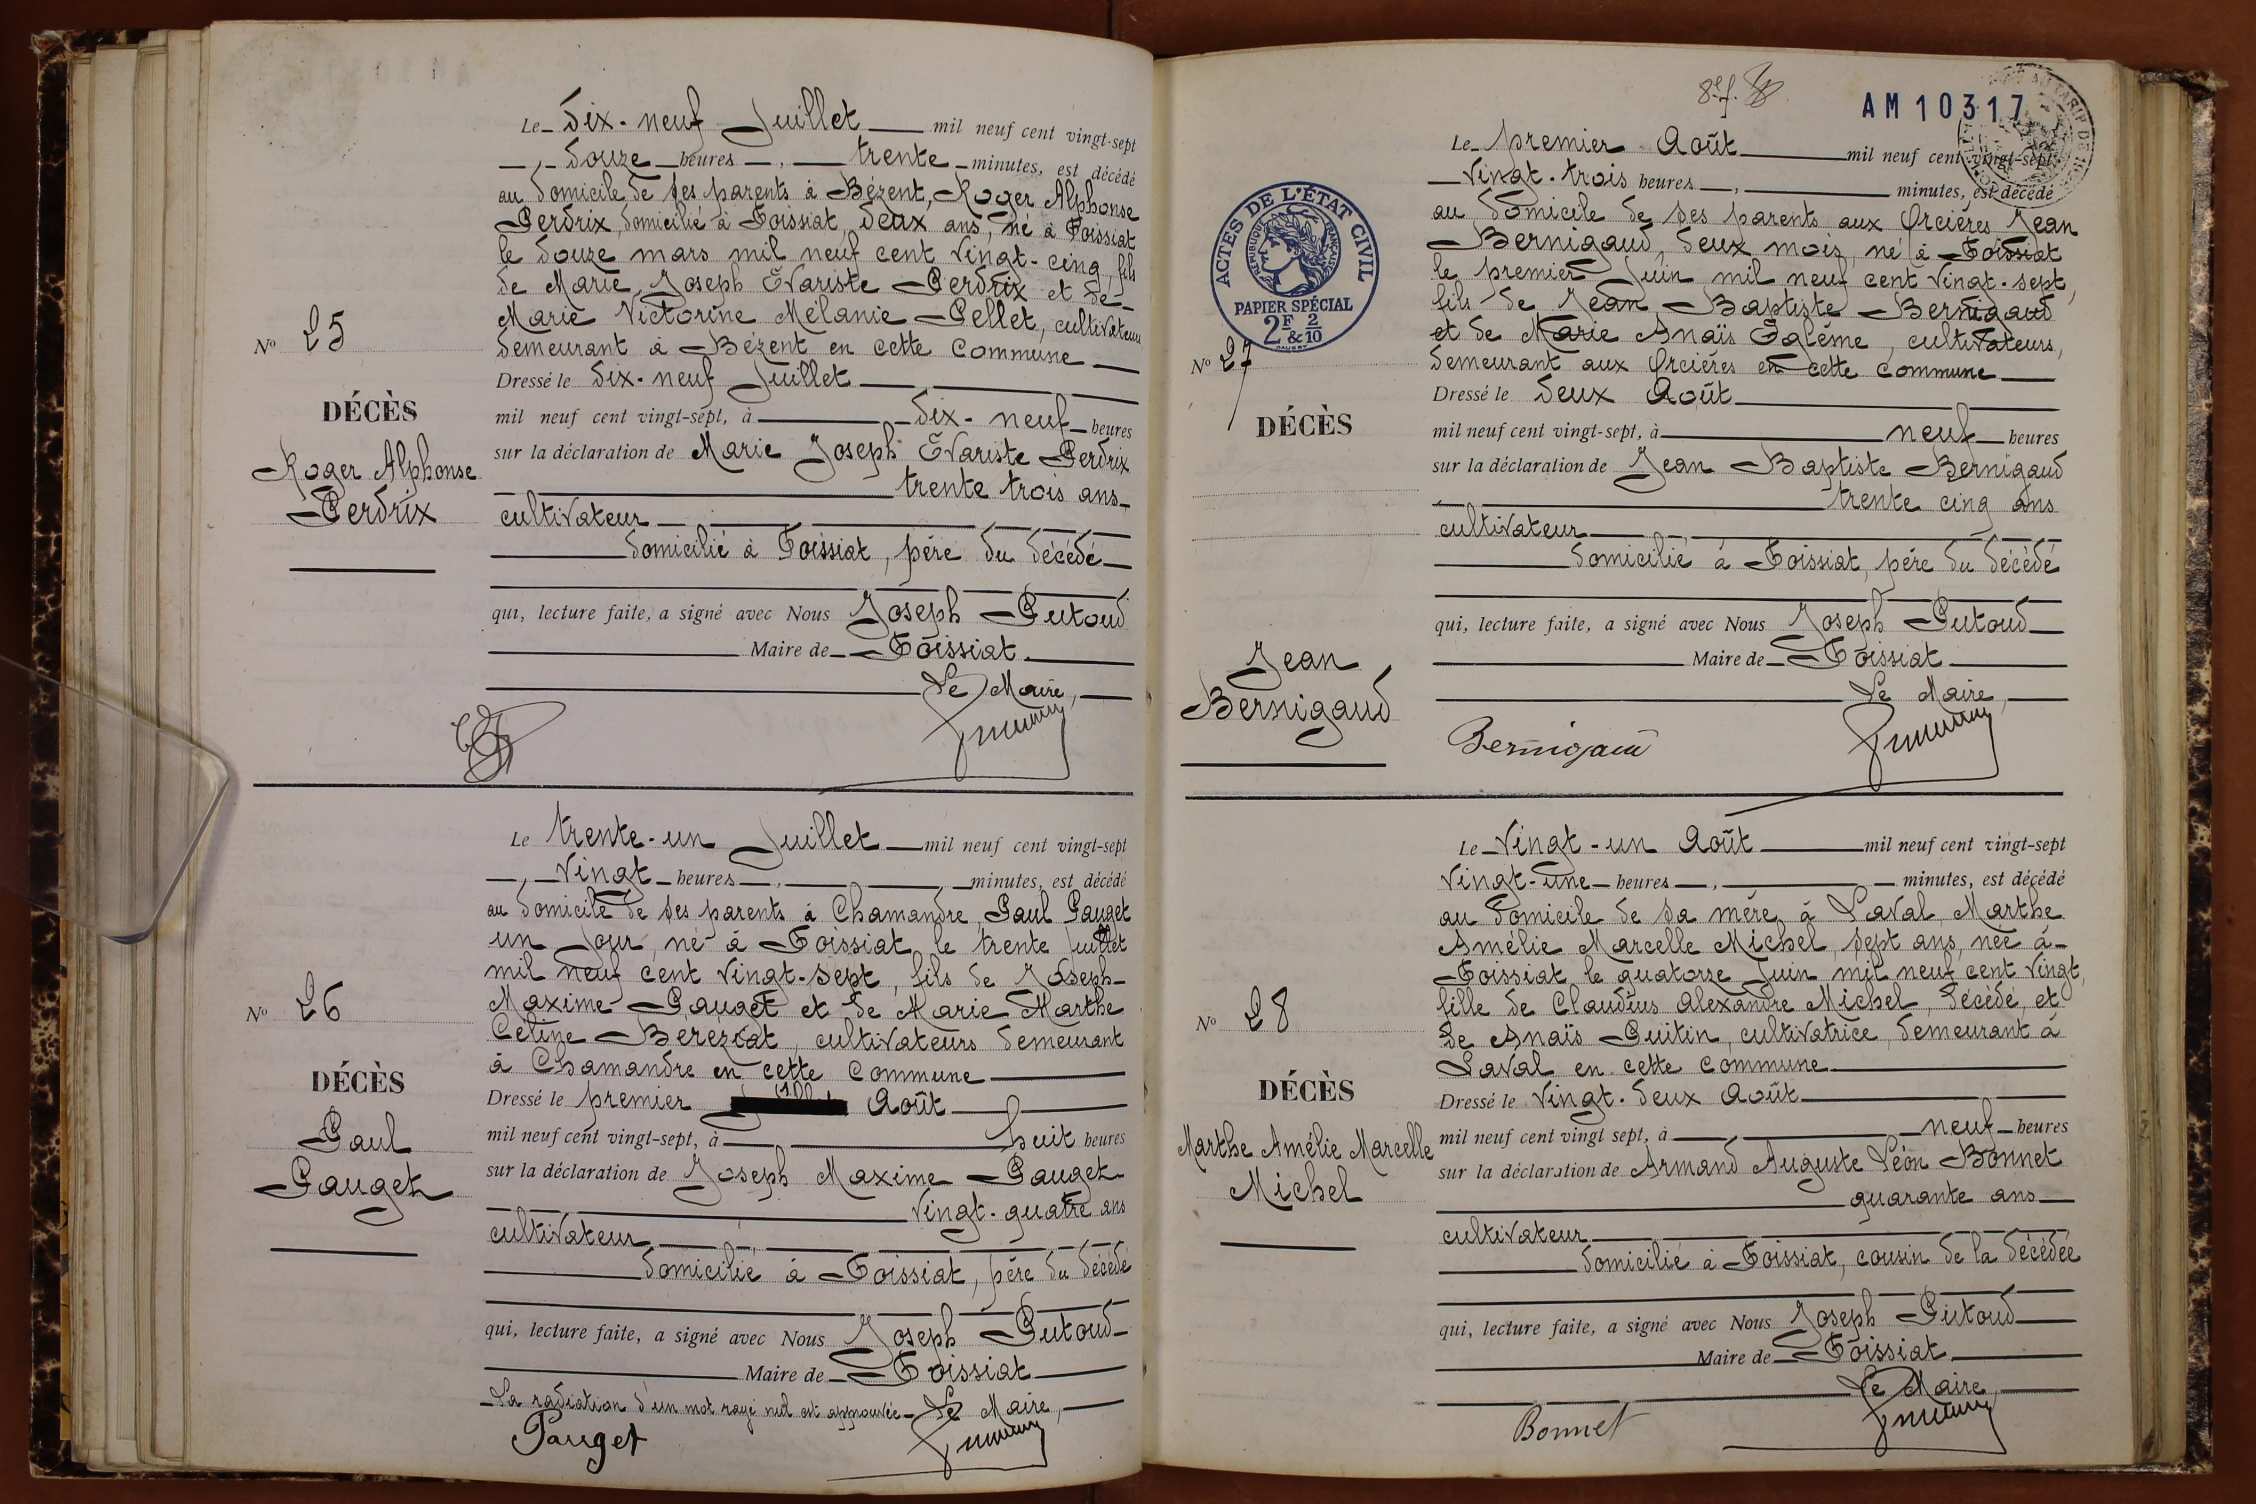 Le Dix-neuf Juillet mil neuf cent vingt-sept
, Douze heures , trente minutes, est décédé
au domicile de ses parents à Bézent, Roger Alphonse
Perdrix, domicilié à Foissiat, deux ans, né à Foissiat
le douze mars mil neuf cent vingt-cinq, fils
de Marie Joseph Evariste Perdrix et de
Marie Victorine Mélanie Pellet, cultivateurs
demeurant à Bézent en cette commune
Nº 25
DÉCÈS
Roger Alphonse
Perdrix
Dressé le dix-neuf Juillet
mil neuf cent vingt-sept, à dix-neuf heures
sur la déclaration de Marie Joseph Evariste Perdrix
trente trois ans
cultivateur
domicilié à Foissiat, père du décédé
qui, lecture faite, a signé avec Nous Joseph Putoud
Maire de Foissiat
Le Maire,
Le trente-un Juillet mil neuf cent vingt-sept
, vingt heures , minutes, est décédé
au domicile de ses parents à Chamandre, Paul Pauget
un jour, né à Foissiat le trente juillet
mil neuf cent vingt-sept, fils de Joseph
Maxime Pauget et de Marie Marthe
Céline Bereziat, cultivateurs demeurant
à Chamandre en cette commune
Nº 26
DÉCÈS
Paul
Pauget
Dressé le premier Août
mil neuf cent vingt-sept, à huit heures
sur la déclaration de Joseph Maxime Pauget
vingt-quatre ans
cultivateur
domicilié à Foissiat, père du décédé
qui, lecture faite, a signé avec Nous Joseph Putoud
Maire de Foissiat
La radiation d'un mot rayé nul est approuvée Le Maire,
Pauget
AM 10317
Le premier Août mil neuf cent vingt-sept
vingt-trois heures , minutes, est décédé
au domicile de ses parents aux Orcières Jean
Bernigaud, deux mois, né à Foissiat
le premier Juin mil neuf cent vingt-sept,
fils de Jean Baptiste Bernigaud
et de Marie Anaïs Eglème, cultivateurs,
demeurant aux Orcières en cette commune
ACTES DE L'ÉTAT CIVIL
RÉPUBLIQUE FRANÇAISE
PAPIER SPÉCIAL
2F & 2/10
Nº 27
DÉCÈS
Jean
Bernigaud
Dressé le deux Août
mil neuf cent vingt-sept, à neuf heures
sur la déclaration de Jean Baptiste Bernigaud
trente cinq ans
cultivateur
domicilié à Foissiat, père du décédé
qui, lecture faite, a signé avec Nous Joseph Putoud
Maire de Foissiat
Le Maire,
Bernigaud
Le Vingt-un Août mil neuf cent vingt-sept
vingt-une heures , minutes, est décédé
au domicile de sa mère à Laval Marthe
Amélie Marcelle Michel, sept ans, née à
Foissiat le quatorze juin mil neuf cent vingt,
fille de Claudius Alexandre Michel, décédé, et
de Anaïs Guitin, cultivatrice, demeurant à
Laval en cette commune
Nº 28
DÉCÈS
Marthe Amélie Marcelle
Michel
Dressé le vingt-deux Août
mil neuf cent vingt sept, à neuf heures
sur la déclaration de Armand Auguste Léon Bonnet
quarante ans
cultivateur
domicilié à Foissiat, cousin de la décédée
qui, lecture faite, a signé avec Nous Joseph Putoud
Maire de Foissiat
Le Maire,
Bonnet